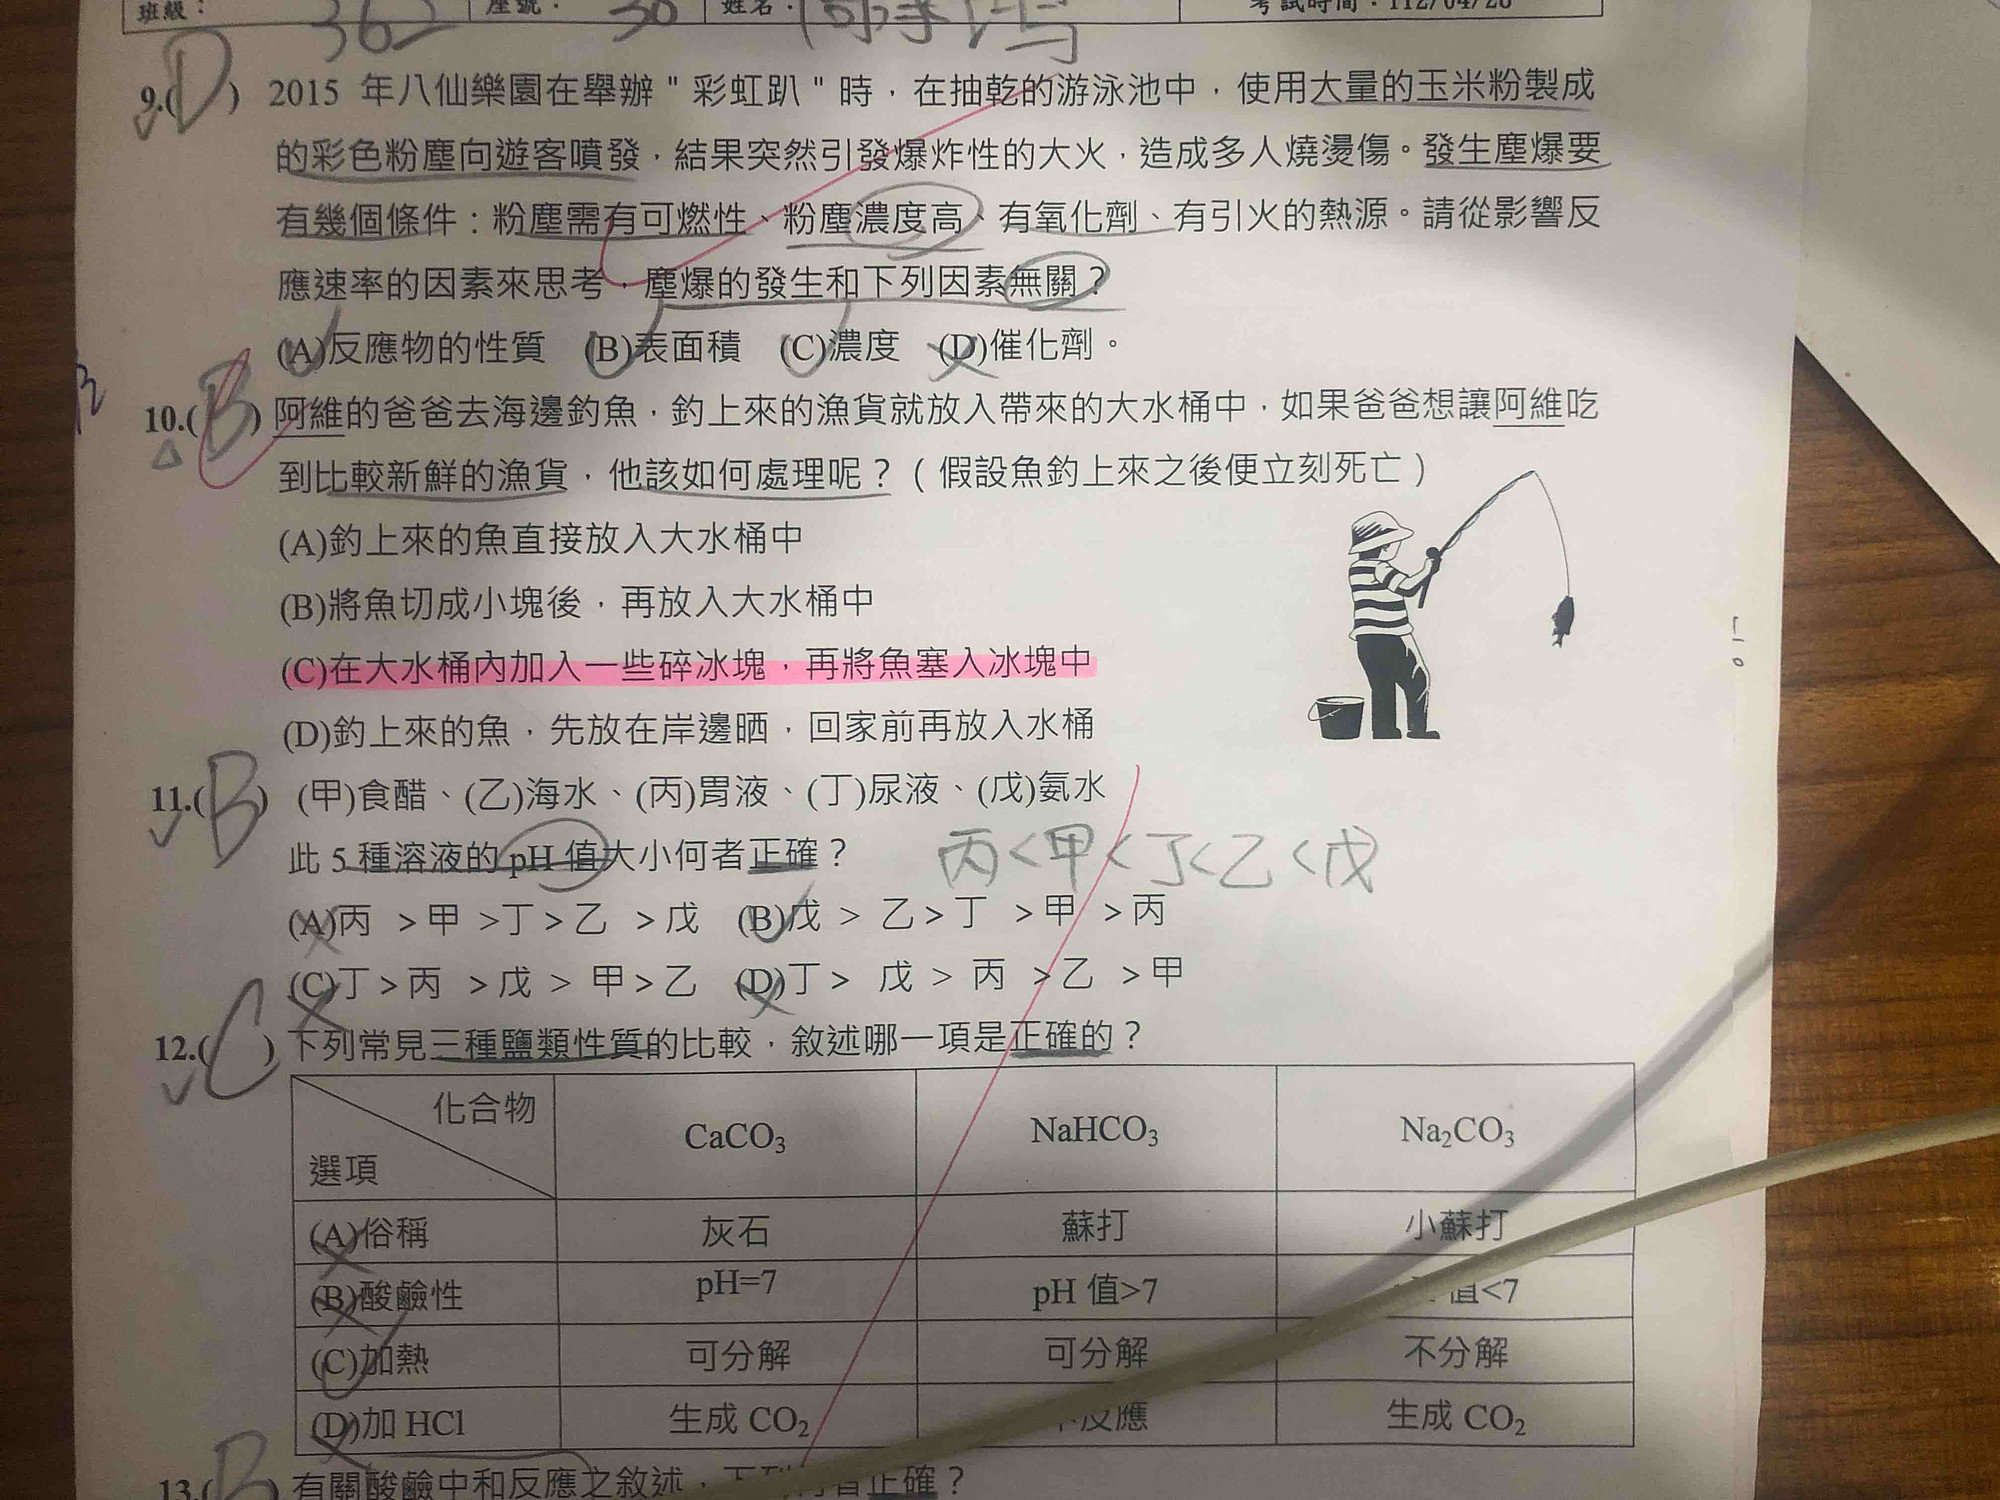 班級： 362 座號： 30 姓名： 考試時間：112/04/28
9.(D) 2015 年八仙樂園在舉辦"彩虹趴"時，在抽乾的游泳池中，使用大量的玉米粉製成
的彩色粉塵向遊客噴發，結果突然引發爆炸性的大火，造成多人燒燙傷。發生塵爆要
有幾個條件：粉塵需有可燃性、粉塵濃度高、有氧化劑、有引火的熱源。請從影響反
應速率的因素來思考，塵爆的發生和下列因素無關？
(A)反應物的性質 (B)表面積 (C)濃度 (D)催化劑。
10.(B) 阿維的爸爸去海邊釣魚，釣上來的漁貨就放入帶來的大水桶中，如果爸爸想讓阿維吃
到比較新鮮的漁貨，他該如何處理呢？（假設魚釣上來之後便立刻死亡）
(A)釣上來的魚直接放入大水桶中
(B)將魚切成小塊後，再放入大水桶中
(C)在大水桶內加入一些碎冰塊，再將魚塞入冰塊中
(D)釣上來的魚，先放在岸邊晒，回家前再放入水桶
11.(B) (甲)食醋、(乙)海水、(丙)胃液、(丁)尿液、(戊)氨水
此 5 種溶液的 pH 值大小何者正確？ 丙<甲<丁<乙<戊
(A)丙 >甲 >丁>乙 >戊 (B)戊 > 乙>丁 >甲 >丙
(C)丁>丙 >戊 > 甲>乙 (D)丁> 戊 > 丙 >乙 >甲
12.(C) 下列常見三種鹽類性質的比較，敘述哪一項是正確的？
化合物 選項 CaCO3 NaHCO3 Na2CO3
(A)俗稱 灰石 蘇打 小蘇打
(B)酸鹼性 pH=7 pH 值>7 值<7
(C)加熱 可分解 可分解 不分解
(D)加 HCl 生成 CO2 反應 生成 CO2
13.(B) 有關酸鹼中和反應之敘述，下列何者正確？